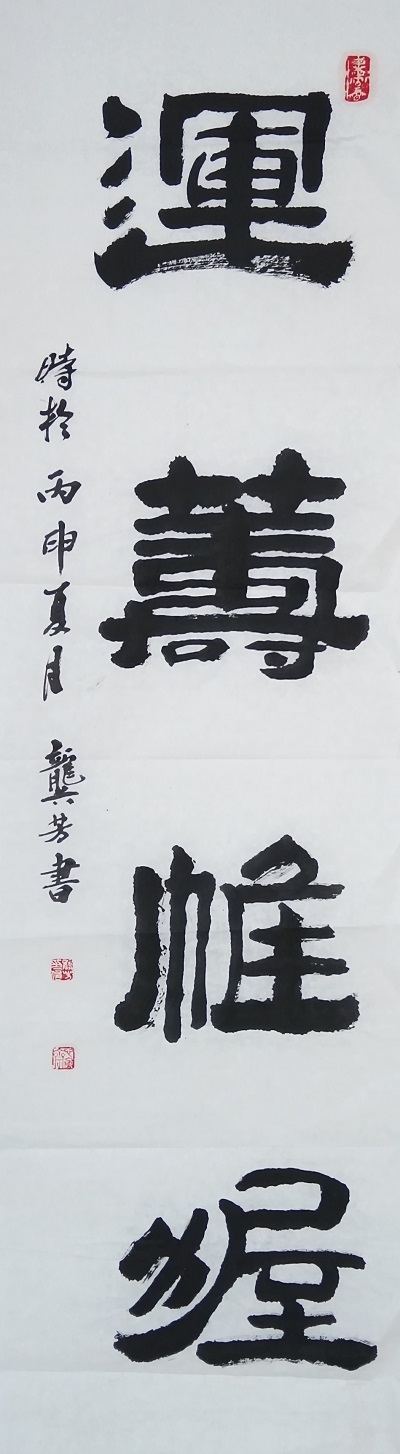 運籌帷幄
時於丙申夏月 龔芳書